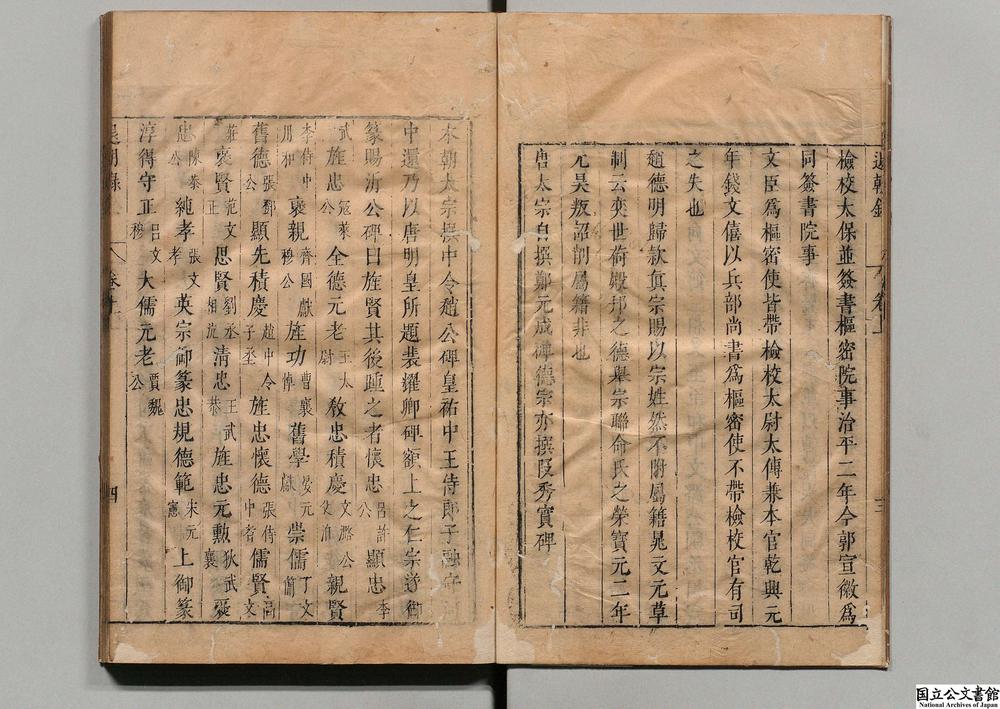 檢校太保並簽書樞密院事治平二年今郭宣徽為
同簽書院事
文臣為樞密使皆帶檢校太尉太傅兼本官乾興元
年錢文僖以兵部尚書為樞密使不帶檢校官有司
之失也
趙德明歸款真宗賜以宗姓然不附屬籍晁文元草
制云奕世荷殿邦之德舉宗聯命氏之榮寶元二年
元昊叛詔削屬籍非也
唐太宗自撰鄭元成碑德宗亦撰段秀實碑
三
本朝太宗撰中令趙公碑皇祐中王侍郎子融守
中還乃以唐明皇所題裴耀卿碑額上之仁宗遂御
篆賜沂公碑曰旌賢其後踵之者懷忠呂許公顯忠李
武旌忠寇萊公全德元老王太尉教忠積慶文潞公親賢
李侍中用和褒親齊國獻穆公旌功曹襄悼舊學晏元獻崇儒丁文簡
舊德張鄧公顯先積慶趙中令旌忠懷德張侍中儒賢高文
莊褒賢范文正思賢劉丞相沆清忠王武恭旌忠元勳狄武襄
忠公陳恭純孝張文孝英宗御篆忠規德範宋元憲上御篆
淳得守正呂文穆大儒元老賈魏公
四
国立公文書館
National Archives of Japan